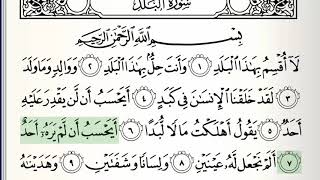 سورة البلد
بِسْمِ اللَّهِ الرَّحْمَٰنِ الرَّحِيمِ
لَآ أُقْسِمُ بِهَٰذَا ٱلْبَلَدِ ١ وَأَنتَ حِلٌّۢ بِهَٰذَا ٱلْبَلَدِ ٢ وَوَالِدٍ وَمَا وَلَدَ
٣ لَقَدْ خَلَقْنَا ٱلْإِنسَٰنَ فِى كَبَدٍ ٤ أَيَحْسَبُ أَن لَّن يَقْدِرَ عَلَيْهِ
أَحَدٌ ٥ يَقُولُ أَهْلَكْتُ مَالًا لُّبَدًا ٦ أَيَحْسَبُ أَن لَّمْ يَرَهُۥٓ أَحَدٌ
٧ أَلَمْ نَجْعَل لَّهُۥ عَيْنَيْنِ ٨ وَلِسَانًا وَشَفَتَيْنِ ٩ وَهَدَيْنَٰهُ